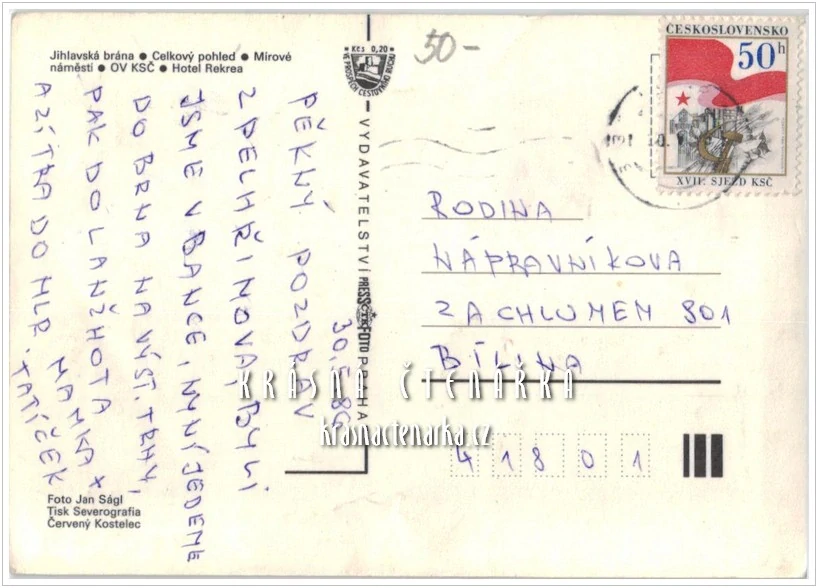 Jihlavská brána ● Celkový pohled ● Mírové
náměstí ● OV KSČ ● Hotel Rekrea
PĚKNÝ POZDRAV
Z PELHŘIMOVA, BYLI
JSME V BANCE, NYNÍ JEDEME
DO BRNA NA VÝST. TRHY,
PAK DO LANŽHOTA
A ZÍTRA DO HLR.
MAMKA +
TATÍČEK
30.5.86
Foto Jan Ságl
Tisk Severografia
Červený Kostelec
Kčs 0,20
VE PROSPĚCH CESTOVNÍHO RUCHU
VYDAVATELSTVÍ PRESSFOTO PRAHA
ČTK
50-
ČESKOSLOVENSKO
50h
XVII. SJEZD KSČ
RODINA
NÁPRAVNÍKOVA
ZA CHLUMEM 801
BÍLINA
41801
KRÁSNÁ ČTENÁŘKA
krasnactenarka.cz